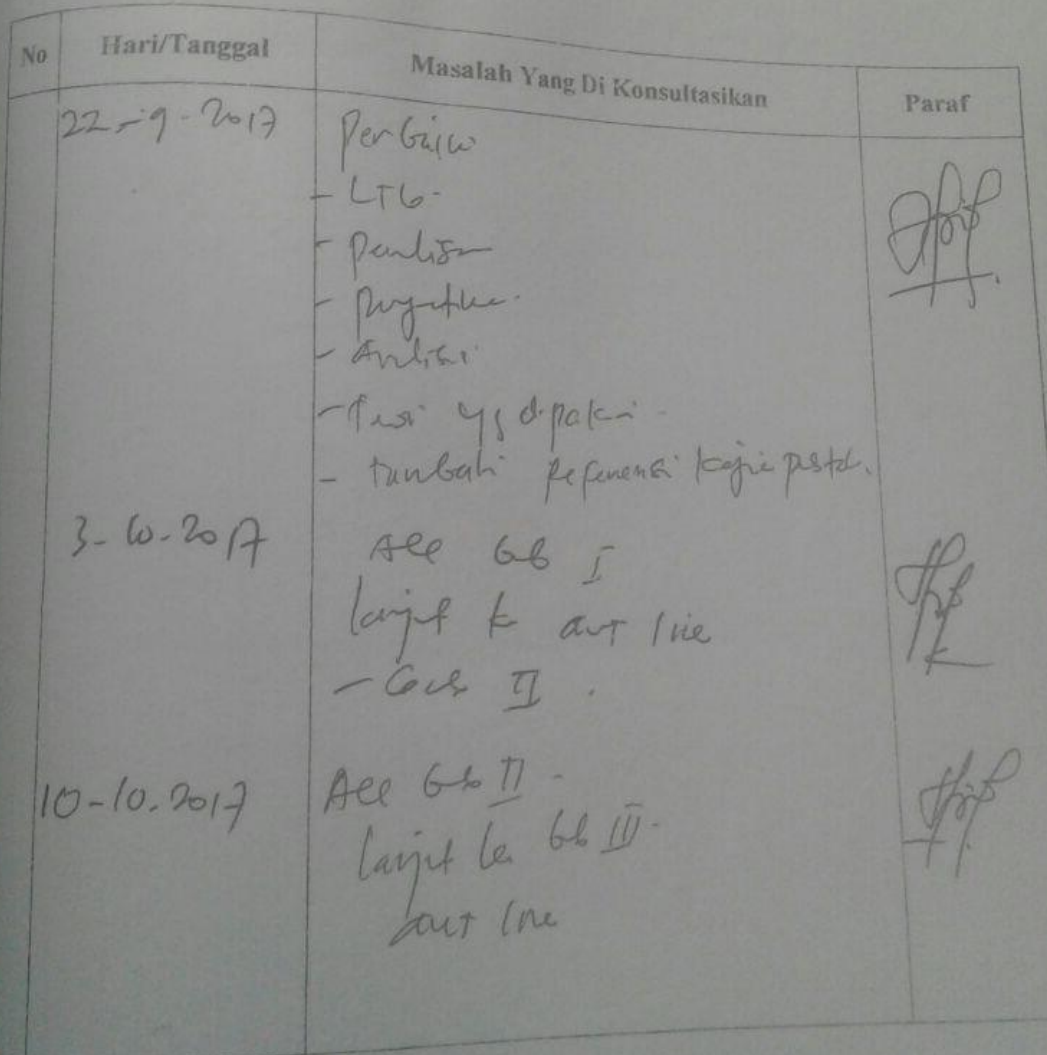 No Hari/Tanggal Masalah Yang Di Konsultasikan Paraf
22-9-2017 Perbaiki
- LTB
- penulisan
- Analisi
- Teori yg dipakai
- tambah referensi kajian pustak.
3-10-2017 Acc bab I
lanjut ke out line
- bab II.
10-10-2017 Acc bab II
lanjut ke bab III
out line